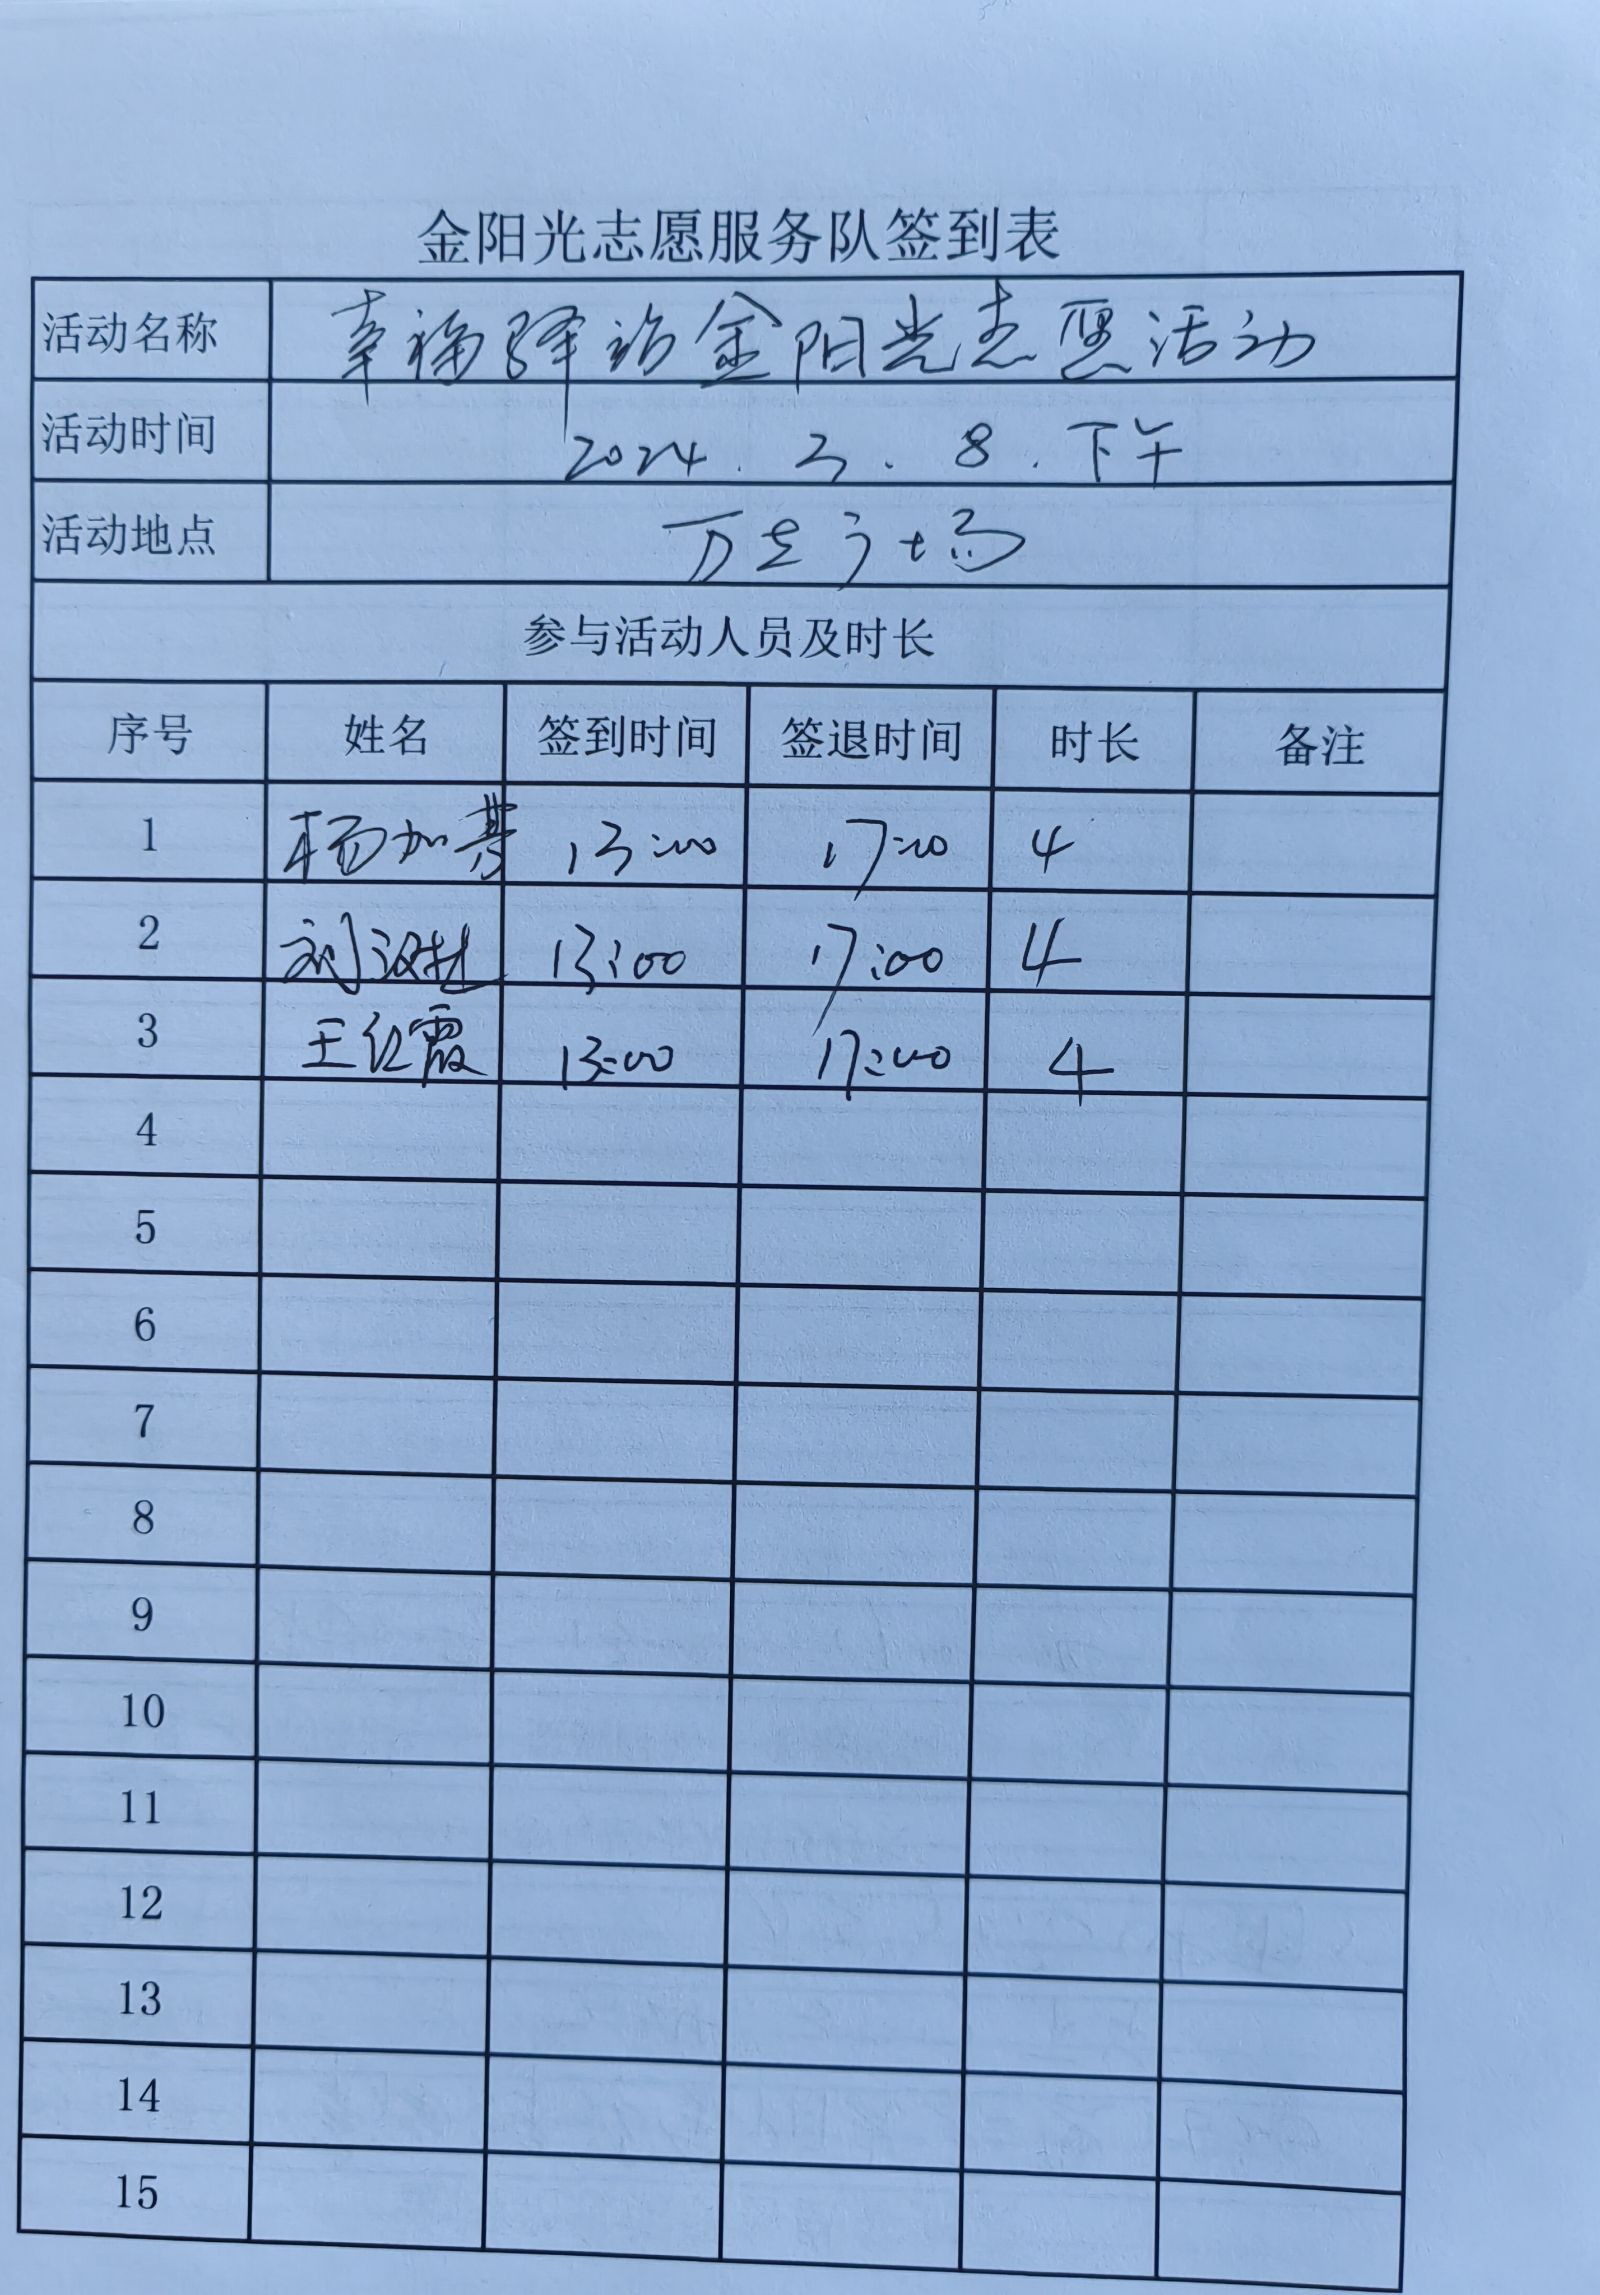 金阳光志愿服务队签到表
活动名称 幸福驿站金阳光志愿活动
活动时间 2024.3.8.下午
活动地点 万达广场
参与活动人员及时长
序号 姓名 签到时间 签退时间 时长 备注
1 杨加 13:00 17:00 4
2 刘汉 13:00 17:00 4
3 王红霞 13:00 17:00 4
4
5
6
7
8
9
10
11
12
13
14
15